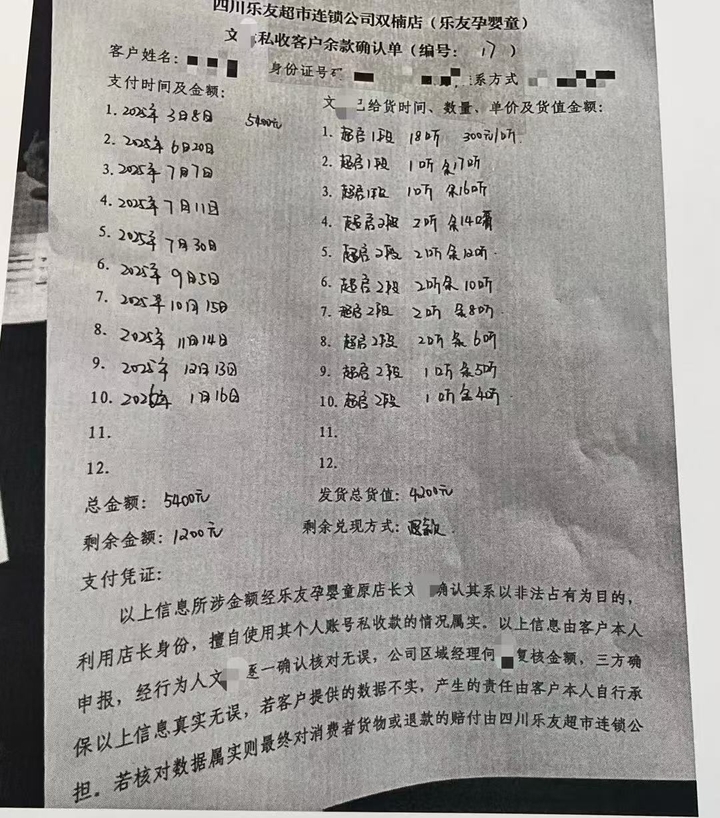 四川乐友超市连锁公司双楠店（乐友孕婴童）
文 私收客户余款确认单（编号： 17 ）
客户姓名： 身份证号 系方式
支付时间及金额：
文 已给货时间、数量、单价及货值金额：
1. 2025年 3月8日 5400元
1. 超启1段 18听 300元/听.
2. 2025年 6月20日
2. 超启1段 1听 余17听
3. 2025年 7月7日
3. 超启1段 1听 余16听
4. 2025年 7月11日
4. 超启2段 2听 余14听
5. 2025年 7月30日
5. 超启2段 2听 余12听.
6. 2025年 9月5日
6. 超启2段 2听余 10听
7. 2025年10月 15日
7. 超启2段 2听 余8听.
8. 2025年 11月14日
8. 超启2段 2听 余 6听
9. 2025年 12月13日
9. 超启2段 1听 余5听
10. 2026年 1月16日
10. 超启2段 1听 余4听
11.
11.
12.
12.
总金额： 5400元
发货总货值： 4200元
剩余金额： 1200元
剩余兑现方式： 退款.
支付凭证：
以上信息所涉金额经乐友孕婴童原店长文 确认其系以非法占有为目的，
利用店长身份，擅自使用其个人账号私收款的情况属实。以上信息由客户本人
申报，经行为人文 逐一确认核对无误，公司区域经理何 复核金额，三方确
保以上信息真实无误，若客户提供的数据不实，产生的责任由客户本人自行承
担。若核对数据属实则最终对消费者货物或退款的赔付由四川乐友超市连锁公